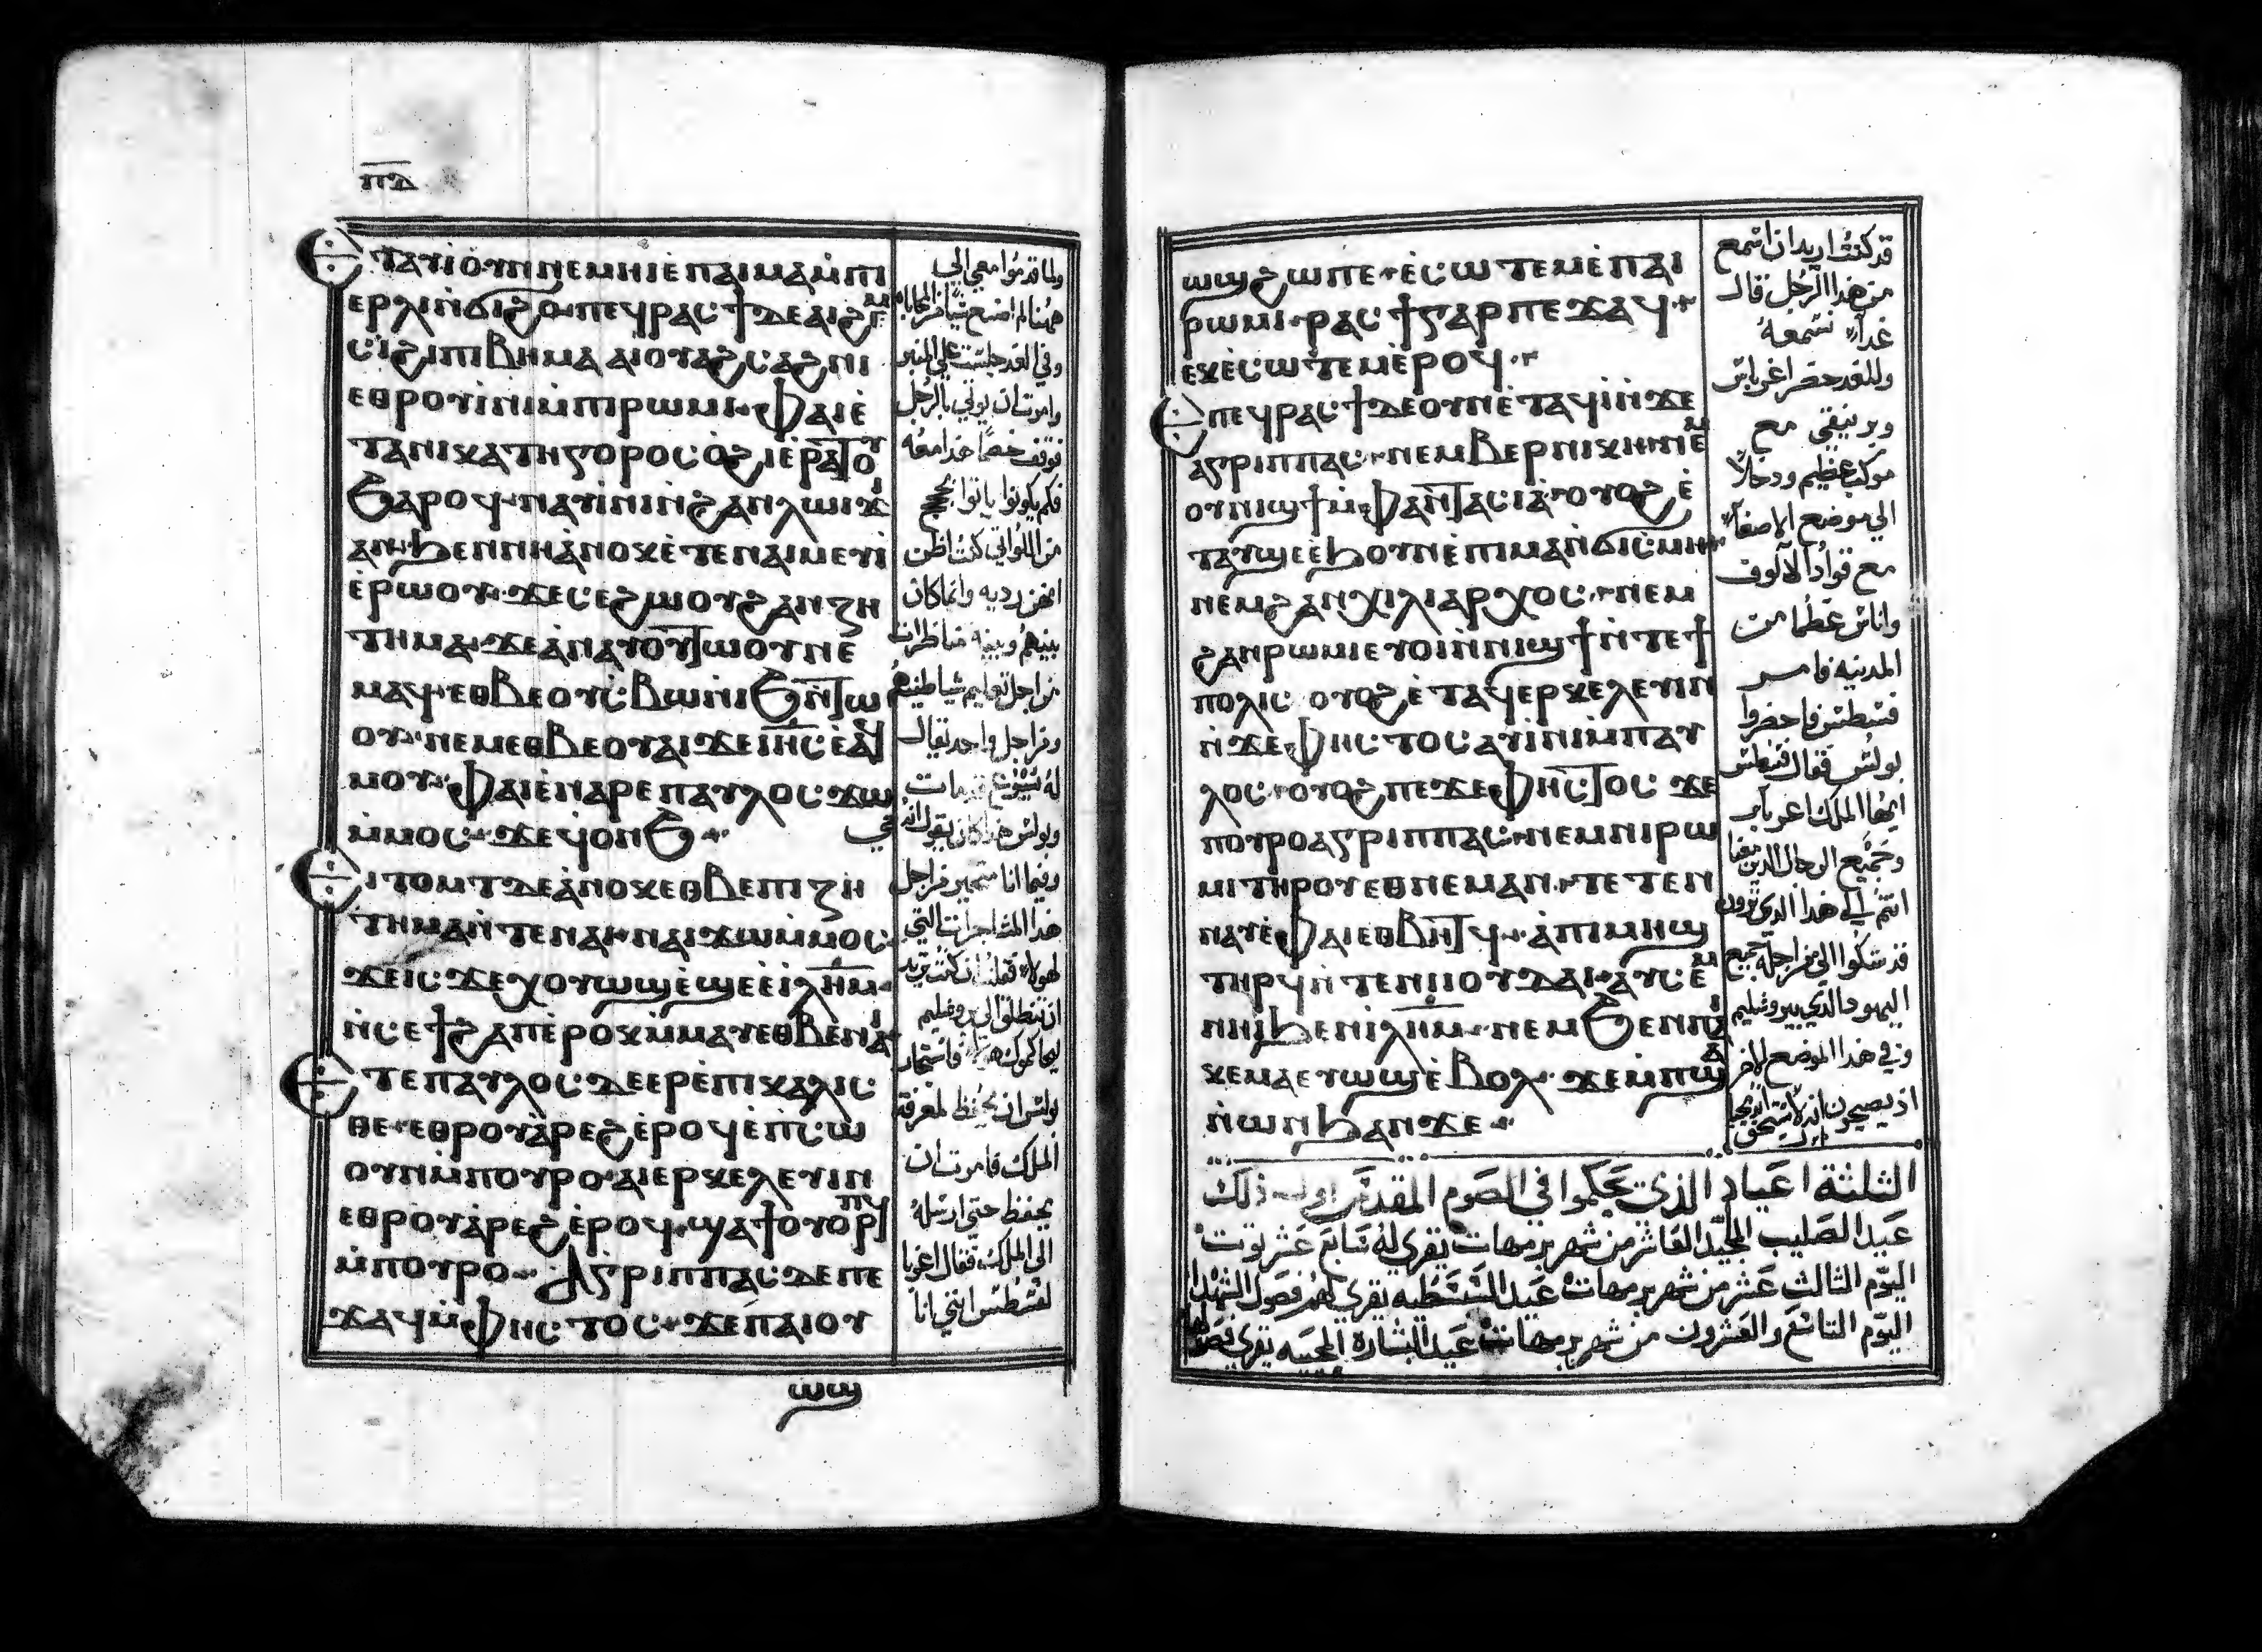 ⲡ̅ⲇ̅
ⲉⲧⲁⲩⲓ̀ ⲟⲩⲛ ⲛⲉⲙⲏⲓ ⲉ̀ⲡⲁⲓⲙⲁ ⲙ̀ⲡⲓ
ⲉⲣ ϩⲗⲓ ⲛ̀ϭⲓϩⲟ · ⲡⲉϥⲣⲁⲥϯ ⲇⲉ ⲁⲓϩⲉⲙ
ⲥⲓ ϩⲓ ⲡⲓⲃⲏⲙⲁ ⲁⲓⲟⲩⲁϩⲥⲁϩⲛⲓ
ⲉⲑⲣⲟⲩⲓ̀ⲛⲓ ⲙ̀ⲡⲓⲣⲱⲙⲓ · ⲫⲁⲓ ⲉ̀
ⲧⲁⲛⲓⲕⲁⲧⲏⲅⲟⲣⲟⲥ ⲟ̀ϩⲓ ⲉ̀ⲣⲁⲧⲟⲩ
ϧⲁⲣⲟϥ · ⲛⲁⲩⲓ̀ⲛⲓ ⲛ̀ϩⲁⲛⲗⲱⲓϫⲓ
ⲁⲛ · ϧⲉⲛ ⲛⲏ ⲁ̀ⲛⲟⲕ ⲉ̀ⲧⲉⲛⲁⲓⲙⲉⲩⲓ̀
ⲉ̀ⲣⲱⲟⲩ · ϫⲉ ⲥⲉϩⲱⲟⲩ ϩⲁⲛⲍⲏ
ⲧⲏⲙⲁ · ϫⲉ ⲁ̀ⲛⲁⲩⲟⲩⲧⲱⲟⲩ ⲛⲉ
ⲙⲁϥ · ⲉⲑⲃⲉ ⲟⲩⲥⲃⲱ ⲛ̀ⲓϧⲛ̅ⲧⲱ
ⲟⲩ · ⲛⲉⲙ ⲉⲑⲃⲉ ⲟⲩⲁⲓ ϫⲉ ⲓⲏ̅ⲥ ⲉ̀ⲁϥ
ⲙⲟⲩ · ⲫⲁⲓ ⲉ̀ⲛⲁⲣⲉ ⲡⲁⲩⲗⲟⲥ ϫⲱ
ⲙ̀ⲙⲟⲥ · ϫⲉ ϥⲟⲛϧ ·
ⲉⲓⲧⲟⲙⲧ ⲇⲉ ⲁ̀ⲛⲟⲕ ⲉⲑⲃⲉ ⲡⲓⲍⲏ
ⲧⲏⲙⲁ ⲛ̀ⲧⲉ ⲛⲁⲓ · ⲛⲁⲓϫⲱ ⲙ̀ⲙⲟⲥ
ϫⲉ ⲓⲥϫⲉ ⲭⲟⲩⲱϣ ⲉ̀ϣⲉ ⲉ̀ⲓⲗ̅ⲏ̅ⲙ̅ ·
ⲛ̀ⲥⲉϯϩⲁⲡ ⲉ̀ⲣⲟⲕ ⲙ̀ⲙⲁⲩ ⲉⲑⲃⲉ ⲛⲁⲓ
ⲉⲧⲉ ⲡⲁⲩⲗⲟⲥ ⲇⲉ ⲉⲣⲉ̀ⲡⲓⲕⲁⲗⲓⲥ
ⲑⲉ · ⲉⲑⲣⲟⲩⲁ̀ⲣⲉϩ ⲉ̀ⲣⲟϥ ⲉ̀ⲡⲥⲱ
ⲟⲩⲛ ⲙ̀ⲡⲟⲩⲣⲟ · ⲁⲓⲉⲣⲕⲉⲗⲉⲩⲓⲛ
ⲉⲑⲣⲟⲩⲁ̀ⲣⲉϩ ⲉ̀ⲣⲟϥ · ϣⲁϯⲟⲩⲟⲣⲡϥ
ⲙ̀ⲡⲟⲩⲣⲟ · ⲁⲅⲣⲓⲡⲡⲁⲥ ⲇⲉ ⲡⲉ
ϫⲁϥ ⲙ̀ⲫⲏⲥⲧⲟⲥ · ϫⲉ ⲡⲁⲓⲟⲩ
ⲱϣ
ولما قدموا معي الي
ههنا لم اصنع شيا من المحاباه
وفي الغد جلست علي المنبر
وامرت ان يوتي بالرجل
فوقف خصما هدا معه
فلم يكونوا ياتوا بحجج
من اللواتي كنت اظن
انهن رديه وانما كان
بينهم وبينه مناظرات
من اجل تعليم شياطينهم
ومن اجل واحد يقال
له يسوع مات
وبولس هدا كان يقول انه
حي
وفيما انا متحير من اجل
هدا المشاجرات التي
لهولاء قلت ان كنت تريد
ان تنطلق الي يروشليم
ليحاكموك هناك فاستجار
بولس ان يحفظ لمعرفة
الملك فامرت ان
يحفظ حتي ارسله
الي الملك فقال اغربا
لفسطس انني انا
ⲱϣ ϩⲱ ⲡⲉ · ⲉ̀ⲥⲱⲧⲉⲙ ⲉ̀ⲡⲁⲓ
ⲣⲱⲙⲓ · ⲣⲁⲥϯ ⲅⲁⲣ ⲡⲉϫⲁϥ ·
ⲉⲕⲉ̀ⲥⲱⲧⲉⲙ ⲉ̀ⲣⲟϥ ·
ⲉⲡⲉϥⲣⲁⲥϯ ⲇⲉ ⲟⲩⲛ ⲉ̀ⲧⲁϥⲓ̀ ⲛ̀ϫⲉ
ⲁⲅⲣⲓⲡⲡⲁⲥ · ⲛⲉⲙ ⲃⲉⲣⲛⲓⲕⲏ ⲛⲉⲙ
ⲟⲩⲛⲓϣϯ ⲙ̀ⲫⲁⲛⲧⲁⲥⲓⲁ̀ · ⲟⲩⲟϩ ⲉ̀
ⲧⲁⲩϣⲉ ⲉ̀ϧⲟⲩⲛ ⲉ̀ⲡⲓⲙⲁ ⲛ̀ϭⲓⲥⲙⲏ ·
ⲛⲉⲙ ϩⲁⲛⲭⲓⲗⲓⲁⲣⲭⲟⲥ · ⲛⲉⲙ
ϩⲁⲛⲣⲱⲙⲓ ⲉⲩⲟⲓ ⲛ̀ⲛⲓϣϯ ⲛ̀ⲧⲉ ϯ
ⲡⲟⲗⲓⲥ ⲟⲩⲟϩ ⲉ̀ⲧⲁϥⲉⲣⲕⲉⲗⲉⲩⲓⲛ
ⲛ̀ϫⲉ ⲫⲏⲥⲧⲟⲥ ⲁⲩⲓ̀ⲛⲓ ⲙ̀ⲡⲁⲩ
ⲗⲟⲥ · ⲟⲩⲟϩ ⲡⲉϫⲉ ⲫⲏⲥⲧⲟⲥ ϫⲉ
ⲡⲟⲩⲣⲟ ⲁⲅⲣⲓⲡⲡⲁⲥ · ⲛⲉⲙ ⲛⲓⲣⲱ
ⲙⲓ ⲧⲏⲣⲟⲩ ⲉⲑⲛⲉⲙⲁⲛ · ⲧⲉⲧⲉⲛ
ⲛⲁⲩ ⲉ̀ⲫⲁⲓ ⲉⲑⲃⲏⲧϥ · ⲁ̀ⲡⲓⲙⲏϣ
ⲧⲏⲣϥ ⲛ̀ⲧⲉ ⲛⲓⲓⲟⲩⲇⲁⲓ · ⲁⲩⲥⲉⲙ
ⲛⲏⲓ ϧⲉⲛ ⲓ̀ⲗ̅ⲏ̅ⲙ̅ · ⲛⲉⲙ ϧⲉⲛ ⲡⲁⲓ
ⲕⲉⲙⲁ ⲉⲩⲱϣ ⲉ̀ⲃⲟⲗ · ϫⲉ ⲙ̀ⲡϣⲁ
ⲛ̀ⲱⲛϧ ⲁⲛ ϫⲉ ·
قد كنت اريد ان اسمع
من هدا الرجل قال
غدا نسمعه
وللغد حضر اغرباس
وبرنيقي مع
موكب عظيم ودخلا
الي موضع الاصغاء
مع قواد الالوف
واناس عظما من
المدينه فامر
فسطس فاحضروا
بولس فقال فسطس
ايها الملك اغرباس
وجميع الرجال الدين معنا
انتم الي هدا الدي ترون
قد شكوا الي من اجله جميع
اليهود الدي بيروشليم
وفي هدا الموضع الاخر
اذ يصيحون انه لا يستحق
الثلثة اعياد الذي تحكموا في الصوم المقدس اول ذلك
عيد الصليب المجيد العاشر من شهر برمهات يقري له سابع عشر توت
اليوم الثالث عشر من شهر برمهات عيد يقري لهم فصول الشهدا
اليوم التاسع والعشرون من شهر برمهات عيد البشارة المحييه يقري